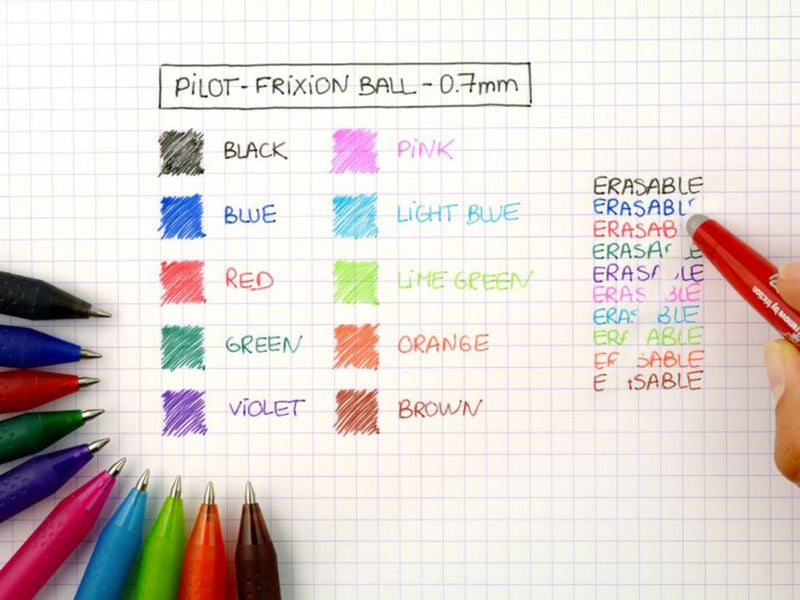 PILOT-FRIXION BALL-0.7mm
BLACK
BLUE
RED
GREEN
VIOLET
PINK
LIGHT BLUE
LIME GREEN
ORANGE
BROWN
ERASABLE
ERASABL
ERASAB
ERASA E
ERASA LE
ERAS BLE
ERA BLE
ER ABLE
E SABLE
E SABLE
remove by friction